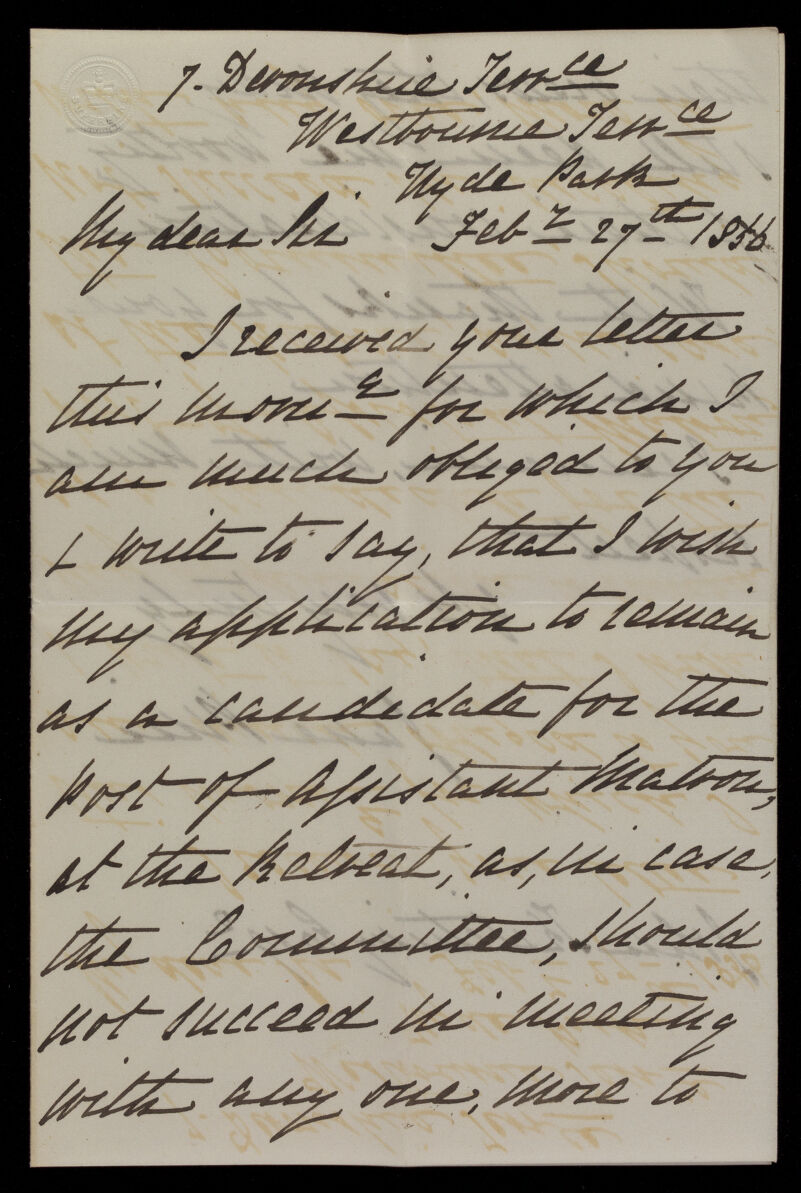 7. Devonshire Terrce
Westbourne Terrce
Hyde Park
My dear Sir Feby 27th 1856
I received your letter
this morng for which I
am much obliged to you
& write to say, that I wish
my application to remain
as a candidate for the
post of Assistant Matron,
at the Retreat, as, in case,
the Committee, should
not succeed in meeting
with any one, more to